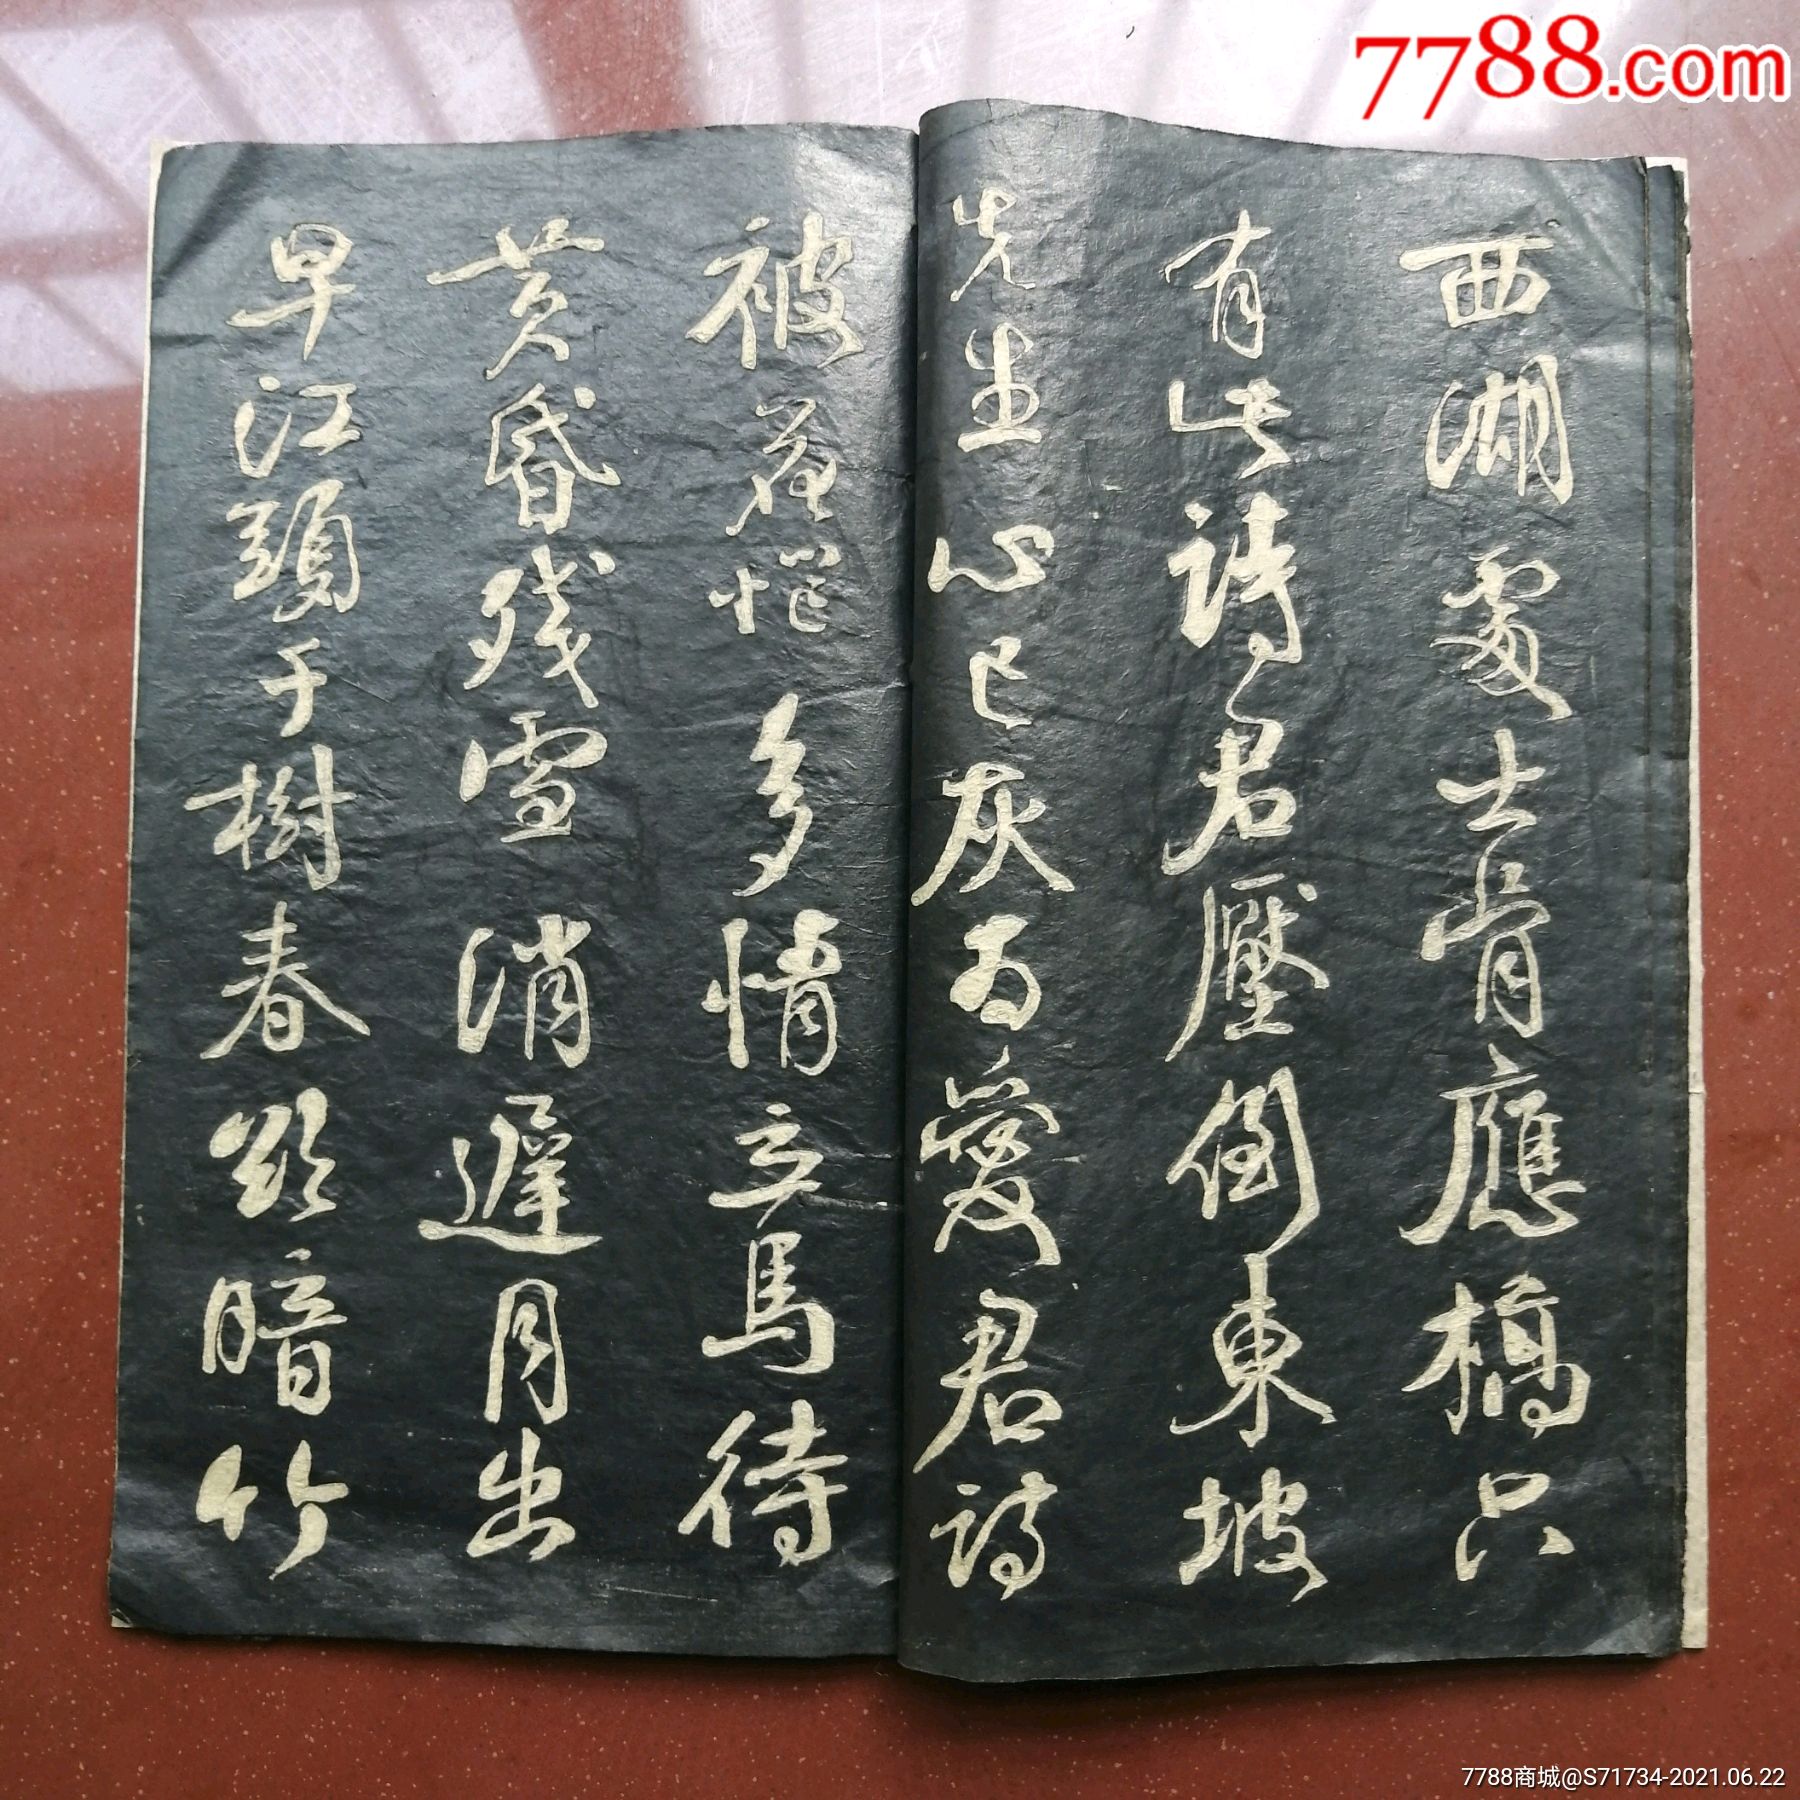 7788.com
西湖處士骨應槁只
有此詩君壓倒東坡
先生心已灰為愛君詩
被花惱多情立馬待
黃昏殘雪消遲月出
早江頭千樹春欲暗竹
7788商城@S71734-2021.06.22